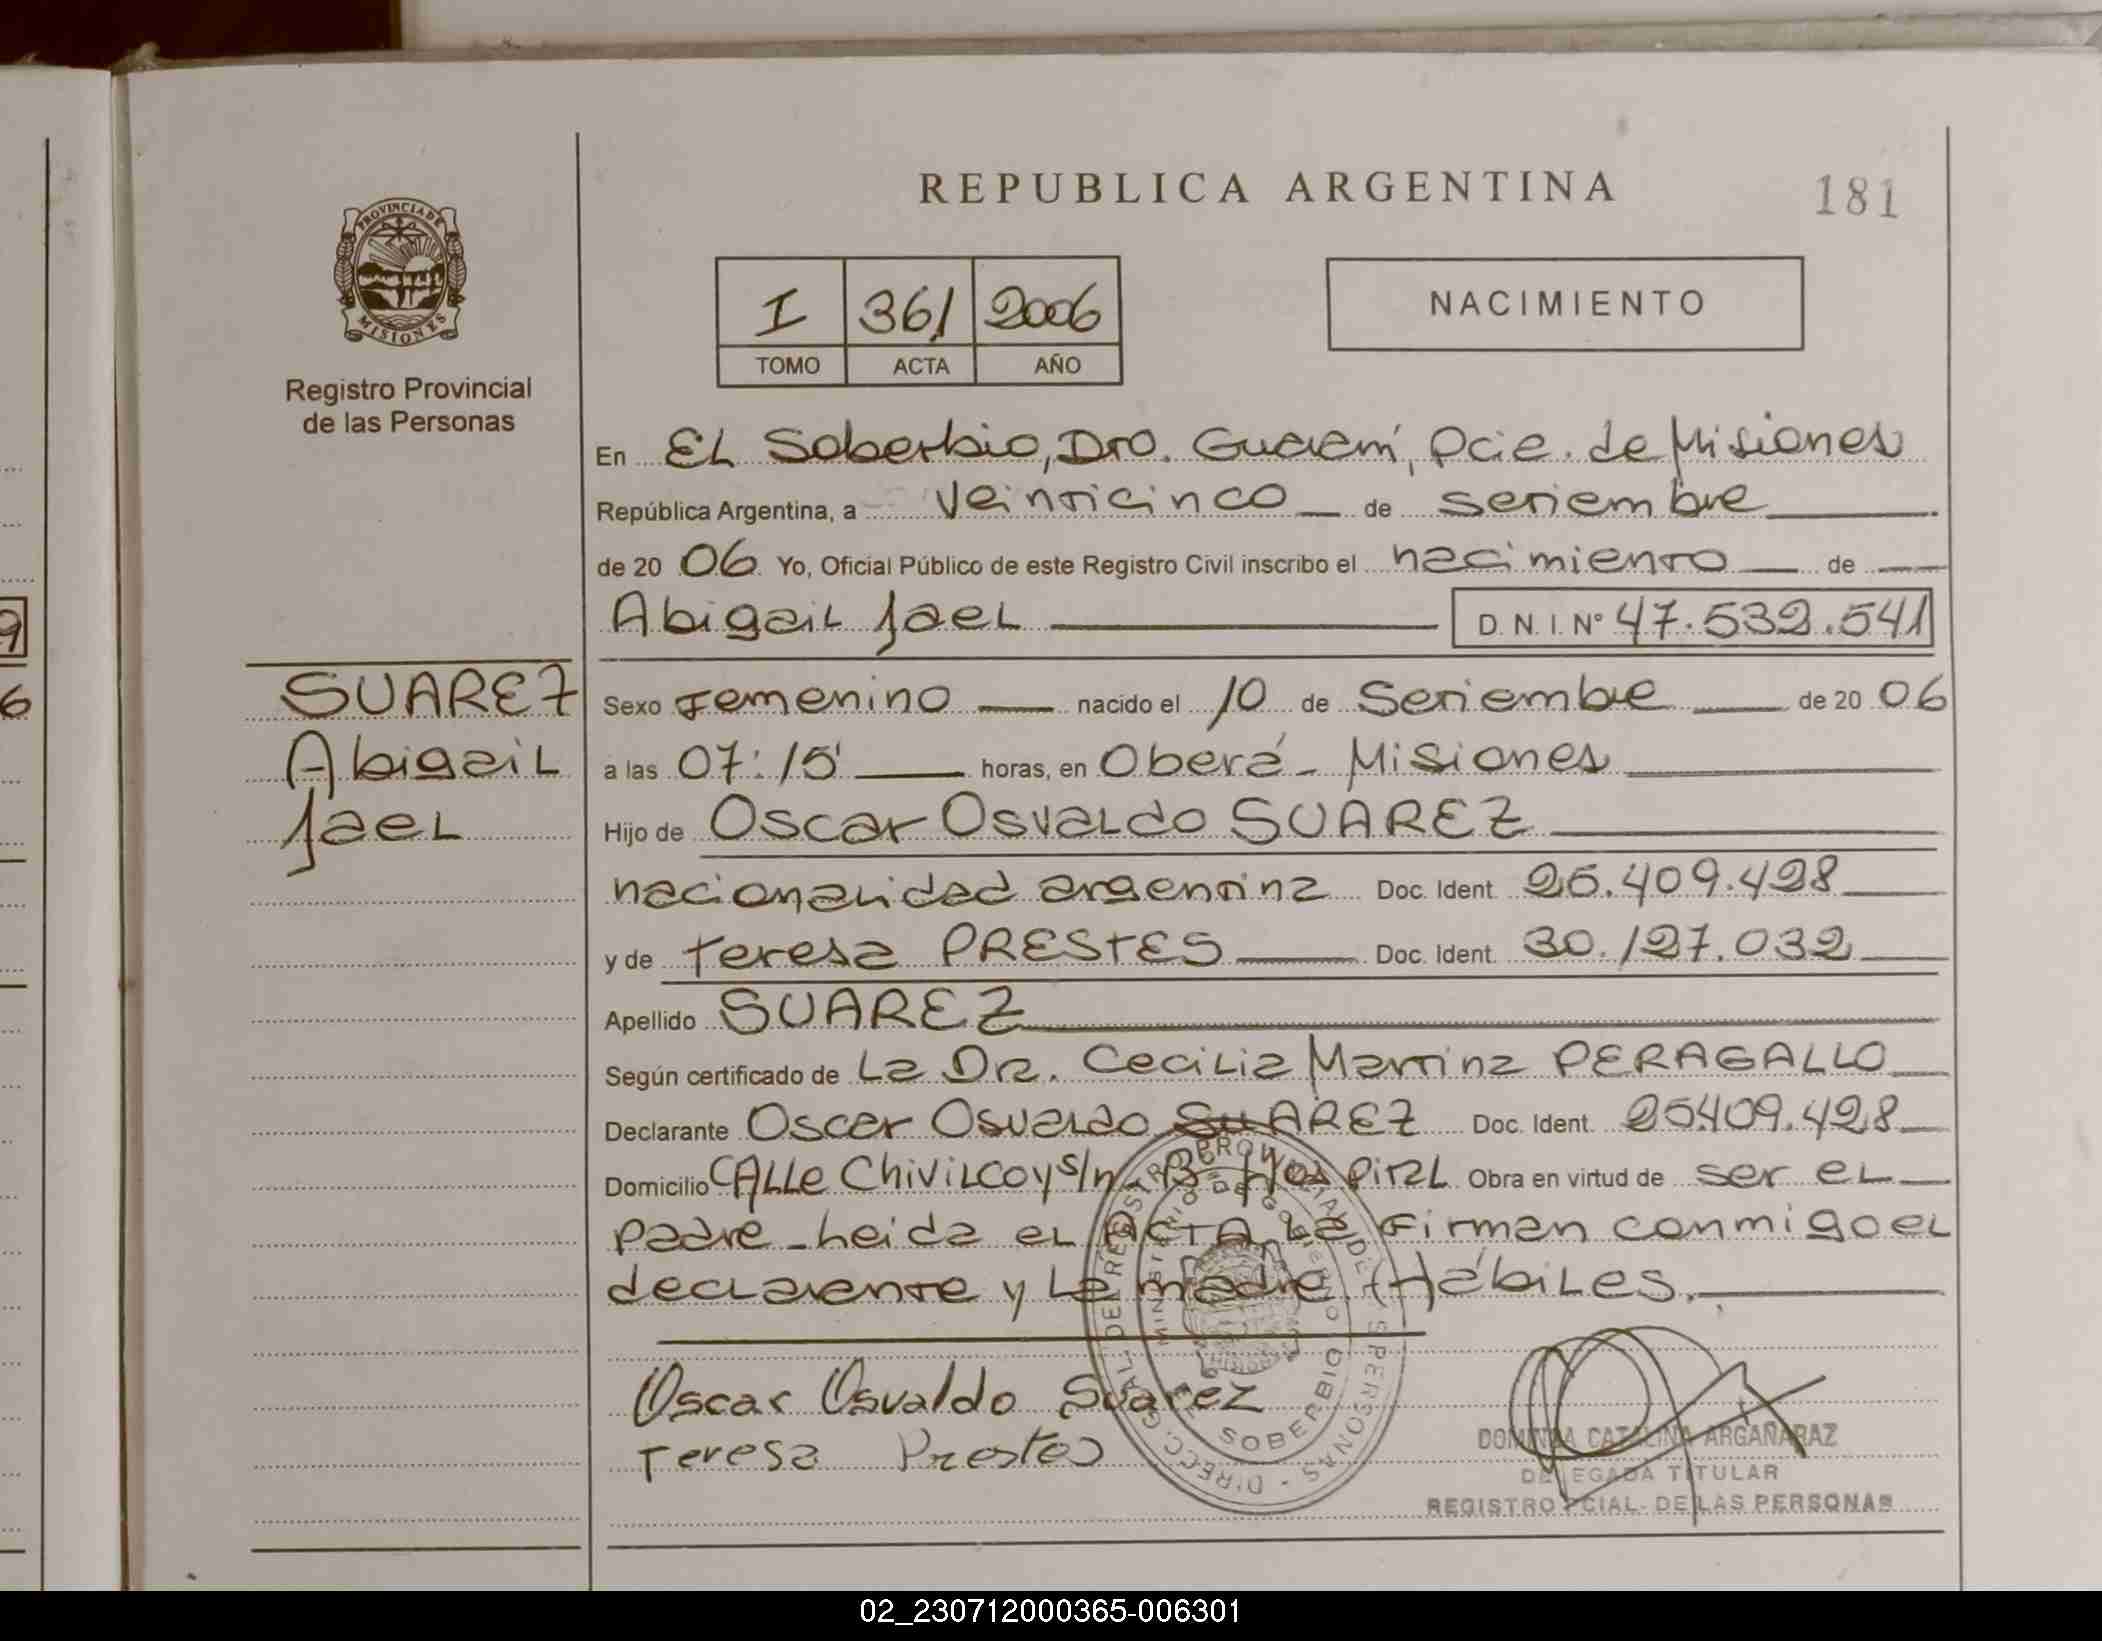 REPUBLICA ARGENTINA
181
PROVINCIA DE
MISIONES
Registro Provincial
de las Personas
I 361 2006
TOMO ACTA AÑO
NACIMIENTO
En EL Soberbio, Dto. Guaraní, Pcia. de Misiones
República Argentina, a veinticinco de setiembre
de 20 06 Yo, Oficial Público de este Registro Civil inscribo el nacimiento de
Abigail Jael D.N.I. Nº 47.532.541
SUAREZ
Abigail
Jael
Sexo Femenino nacido el 10 de Setiembre de 20 06
a las 07:15' horas, en Oberá - Misiones
Hijo de Oscar Osvaldo SUAREZ
nacionalidad argentina Doc. Ident. 25.409.428
y de Teresa PRESTES Doc. Ident. 30.127.032
Apellido SUAREZ
Según certificado de La Dra. Cecilia Martina PERAGALLO
Declarante Oscar Osvaldo SUAREZ Doc. Ident. 25.409.428
Domicilio CALLE CHIVILCOY s/n - Bº Hospital Obra en virtud de ser el
padre - leida el ACTA la firman conmigo el
declarante y la madre. (Hábiles.
Oscar Osvaldo Suarez
Teresa Prestes
DIRECC. GRAL. DE REGISTRO PROVINCIAL DE LAS PERSONAS
MINISTERIO DE GOBIERNO
SOBERBIO
DOMINGA CATALINA ARGAÑARAZ
DELEGADA TITULAR
REGISTRO PCIAL. DE LAS PERSONAS
9
6
02_230712000365-006301